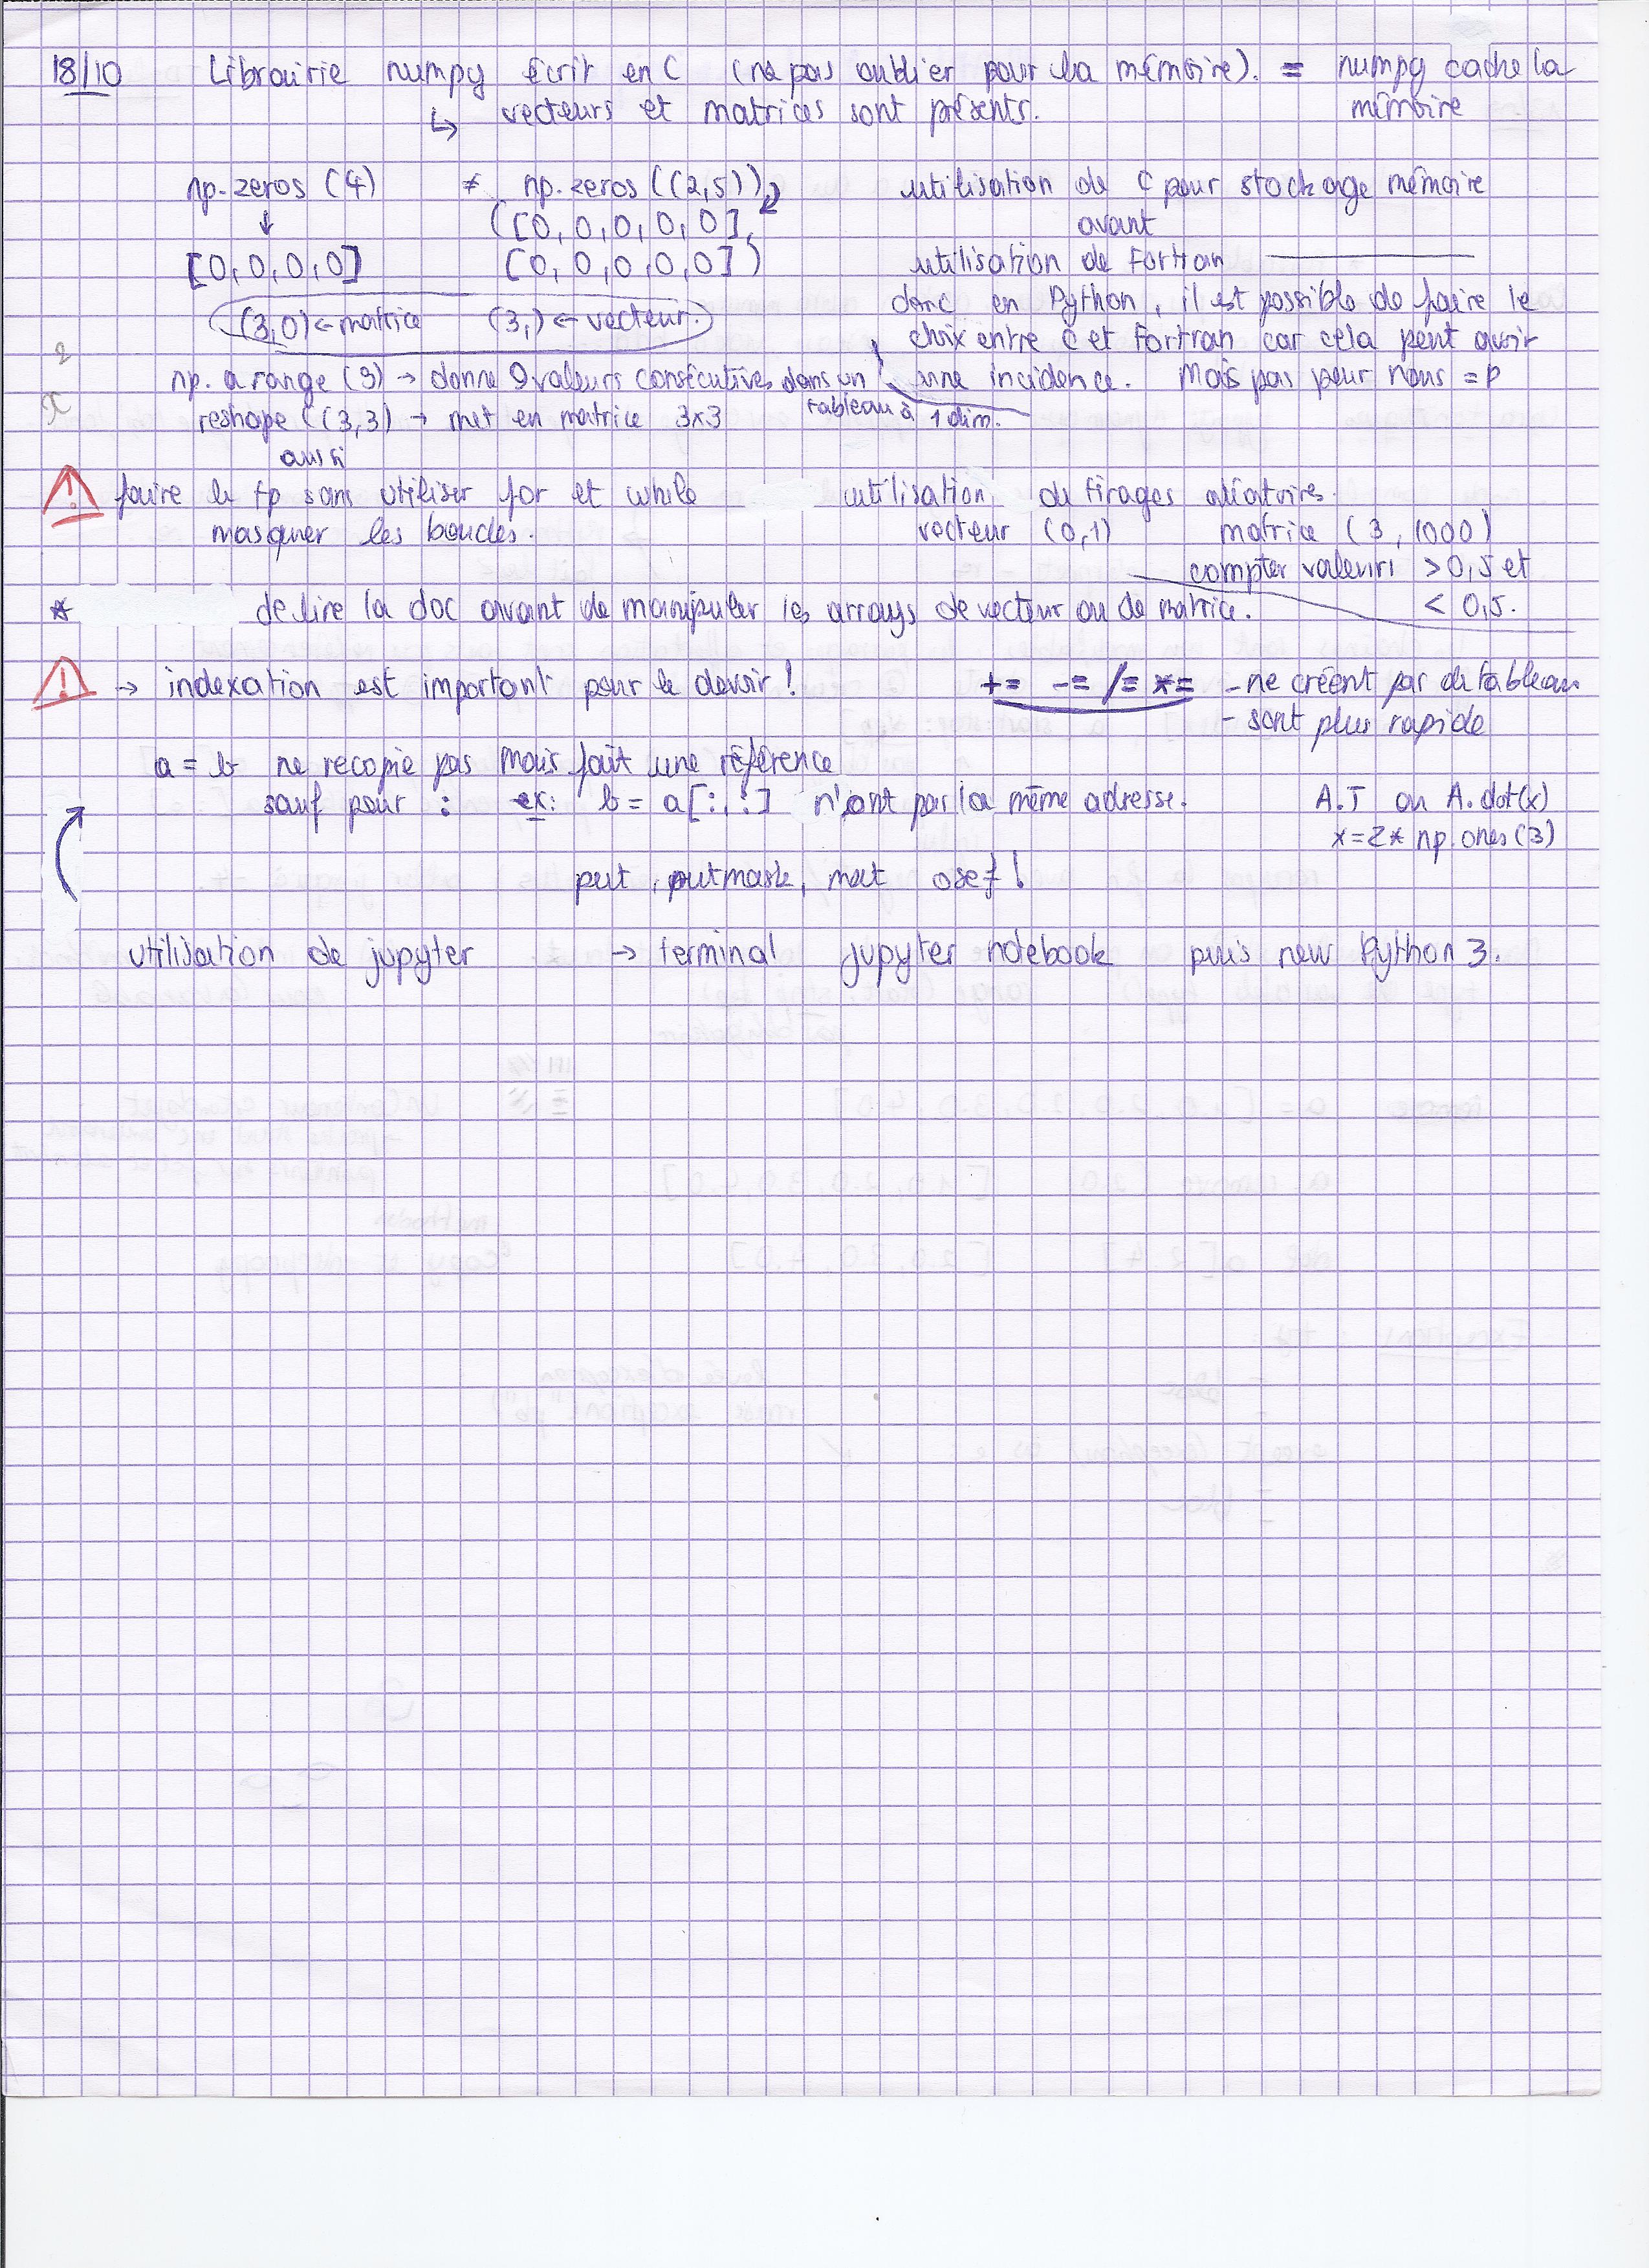 18/10 Librairie numpy écrit en C (ne pas oublier pour la mémoire). = numpy cache la mémoire
↳ vecteurs et matrices sont présents.
np.zeros (4) ≠ np.zeros ((2,5))
↓ ([0, 0, 0, 0, 0],
[0, 0, 0, 0] [0, 0, 0, 0, 0])
(3,0) ← matrice (3,) ← vecteur.
utilisation de C pour stockage mémoire
avant
utilisation de Fortran
donc en Python, il est possible de faire le
choix entre C et Fortran car cela peut avoir
une incidence. Mais pas pour nous =P
np. arange (9) → donne 9 valeurs consécutives dans un tableau à 1 dim.
reshape ((3,3) → met en matrice 3x3
aussi
faire le tp sans utiliser for et while
masquer les boucles.
utilisation de tirages aléatoires.
vecteur (0,1) matrice (3, 1000)
compter valeurs > 0,5 et
< 0,5.
* de lire la doc avant de manipuler les arrays de vecteur ou de matrice.
! → indexation est important pour le devoir !
+= -= /= *= - ne créent pas de tableau
- sont plus rapide
a = b ne recopie pas mais fait une référence
sauf pour : ex: b = a[:,:] n'ont pas la même adresse.
A.T ou A.dot(x)
x = 2* np.ones(3)
put, putmask, mat osef !
utilisation de jupyter → terminal jupyter notebook puis new Python 3.